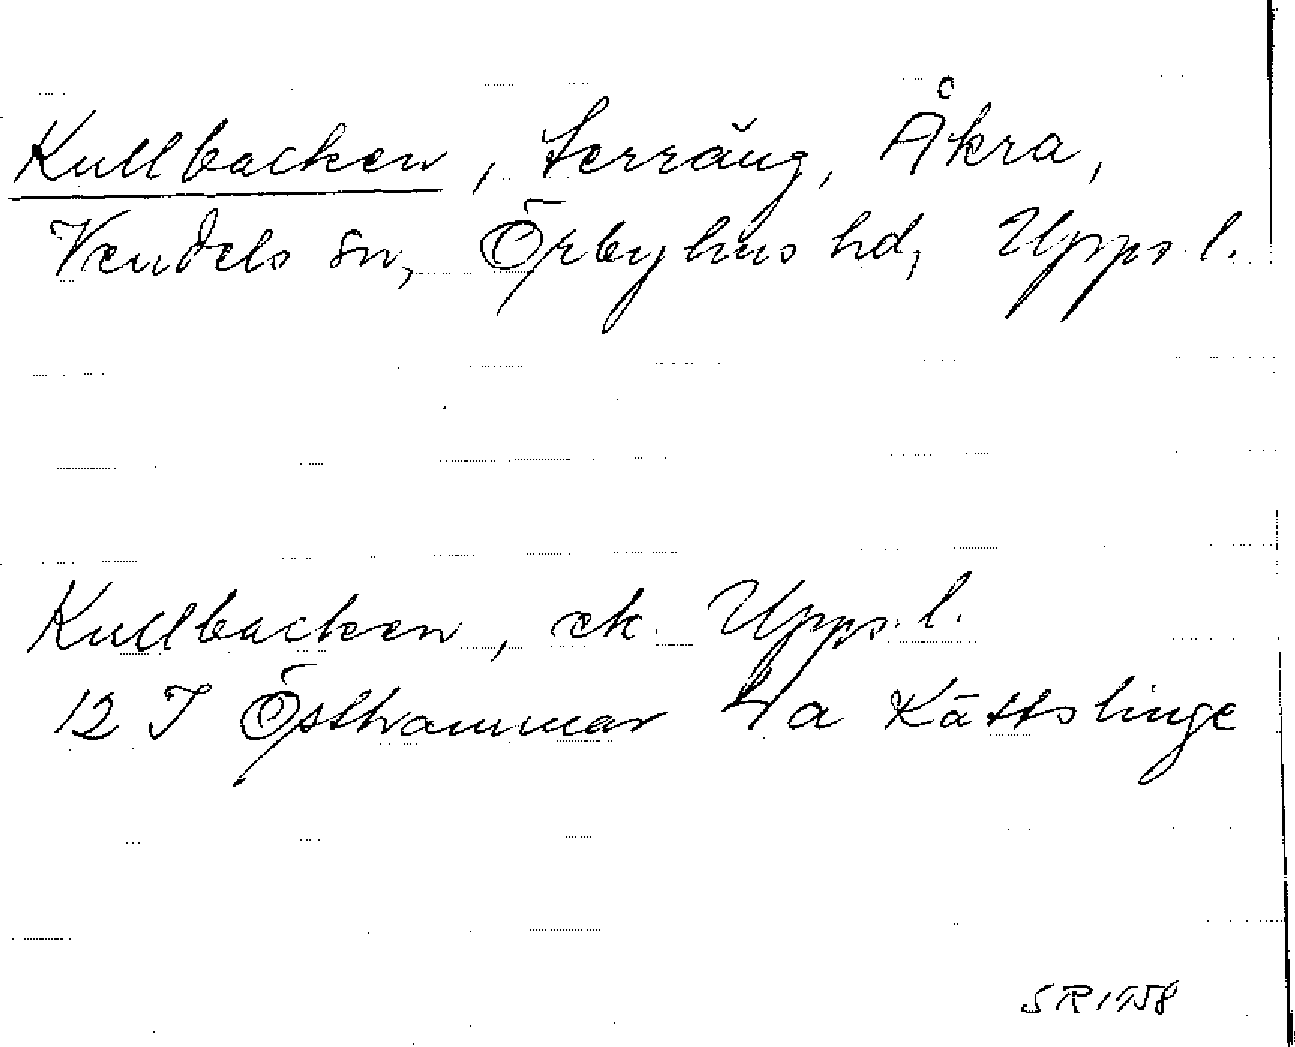 Kullbacken, terräng, Åkra,
Vendels sn, Örbyhus hd, Uppl.
Kullbacken, ek. Uppl.
12 I Östhammar 4a Kättslinge
SR 1958